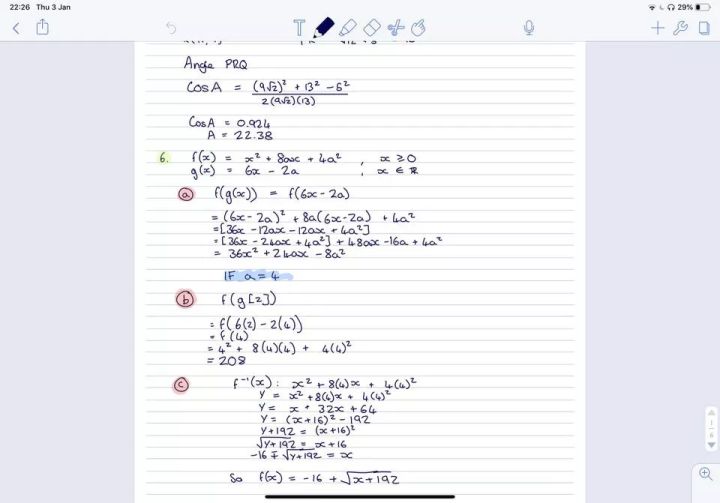 22:26 Thu 3 Jan
29%
Angle PRQ
Cos A = ((9√2)² + 13² - 5²) / (2(9√2)(13))
Cos A = 0.924
A = 22.38
6. f(x) = x² + 8ax + 4a² , x ≥ 0
g(x) = 6x - 2a , x ∈ ℝ
a f(g(x)) = f(6x - 2a)
= (6x - 2a)² + 8a(6x - 2a) + 4a²
= [36x - 12ax - 12ax + 4a²]
= [36x - 24ax + 4a²] + 48ax - 16a + 4a²
= 36x² + 24ax - 8a²
IF a = 4
b f(g[2])
= f(6(2) - 2(4))
= f(4)
= 4² + 8(4)(4) + 4(4)²
= 208
c f⁻¹(x) : x² + 8(4)x + 4(4)²
y = x² + 8(4)x + 4(4)²
y = x + 32x + 64
y = (x+16)² - 192
y + 192 = (x+16)²
√(y+192) = x + 16
-16 ∓ √(y+192) = x
So f(x) = -16 + √(x+192)
1
6